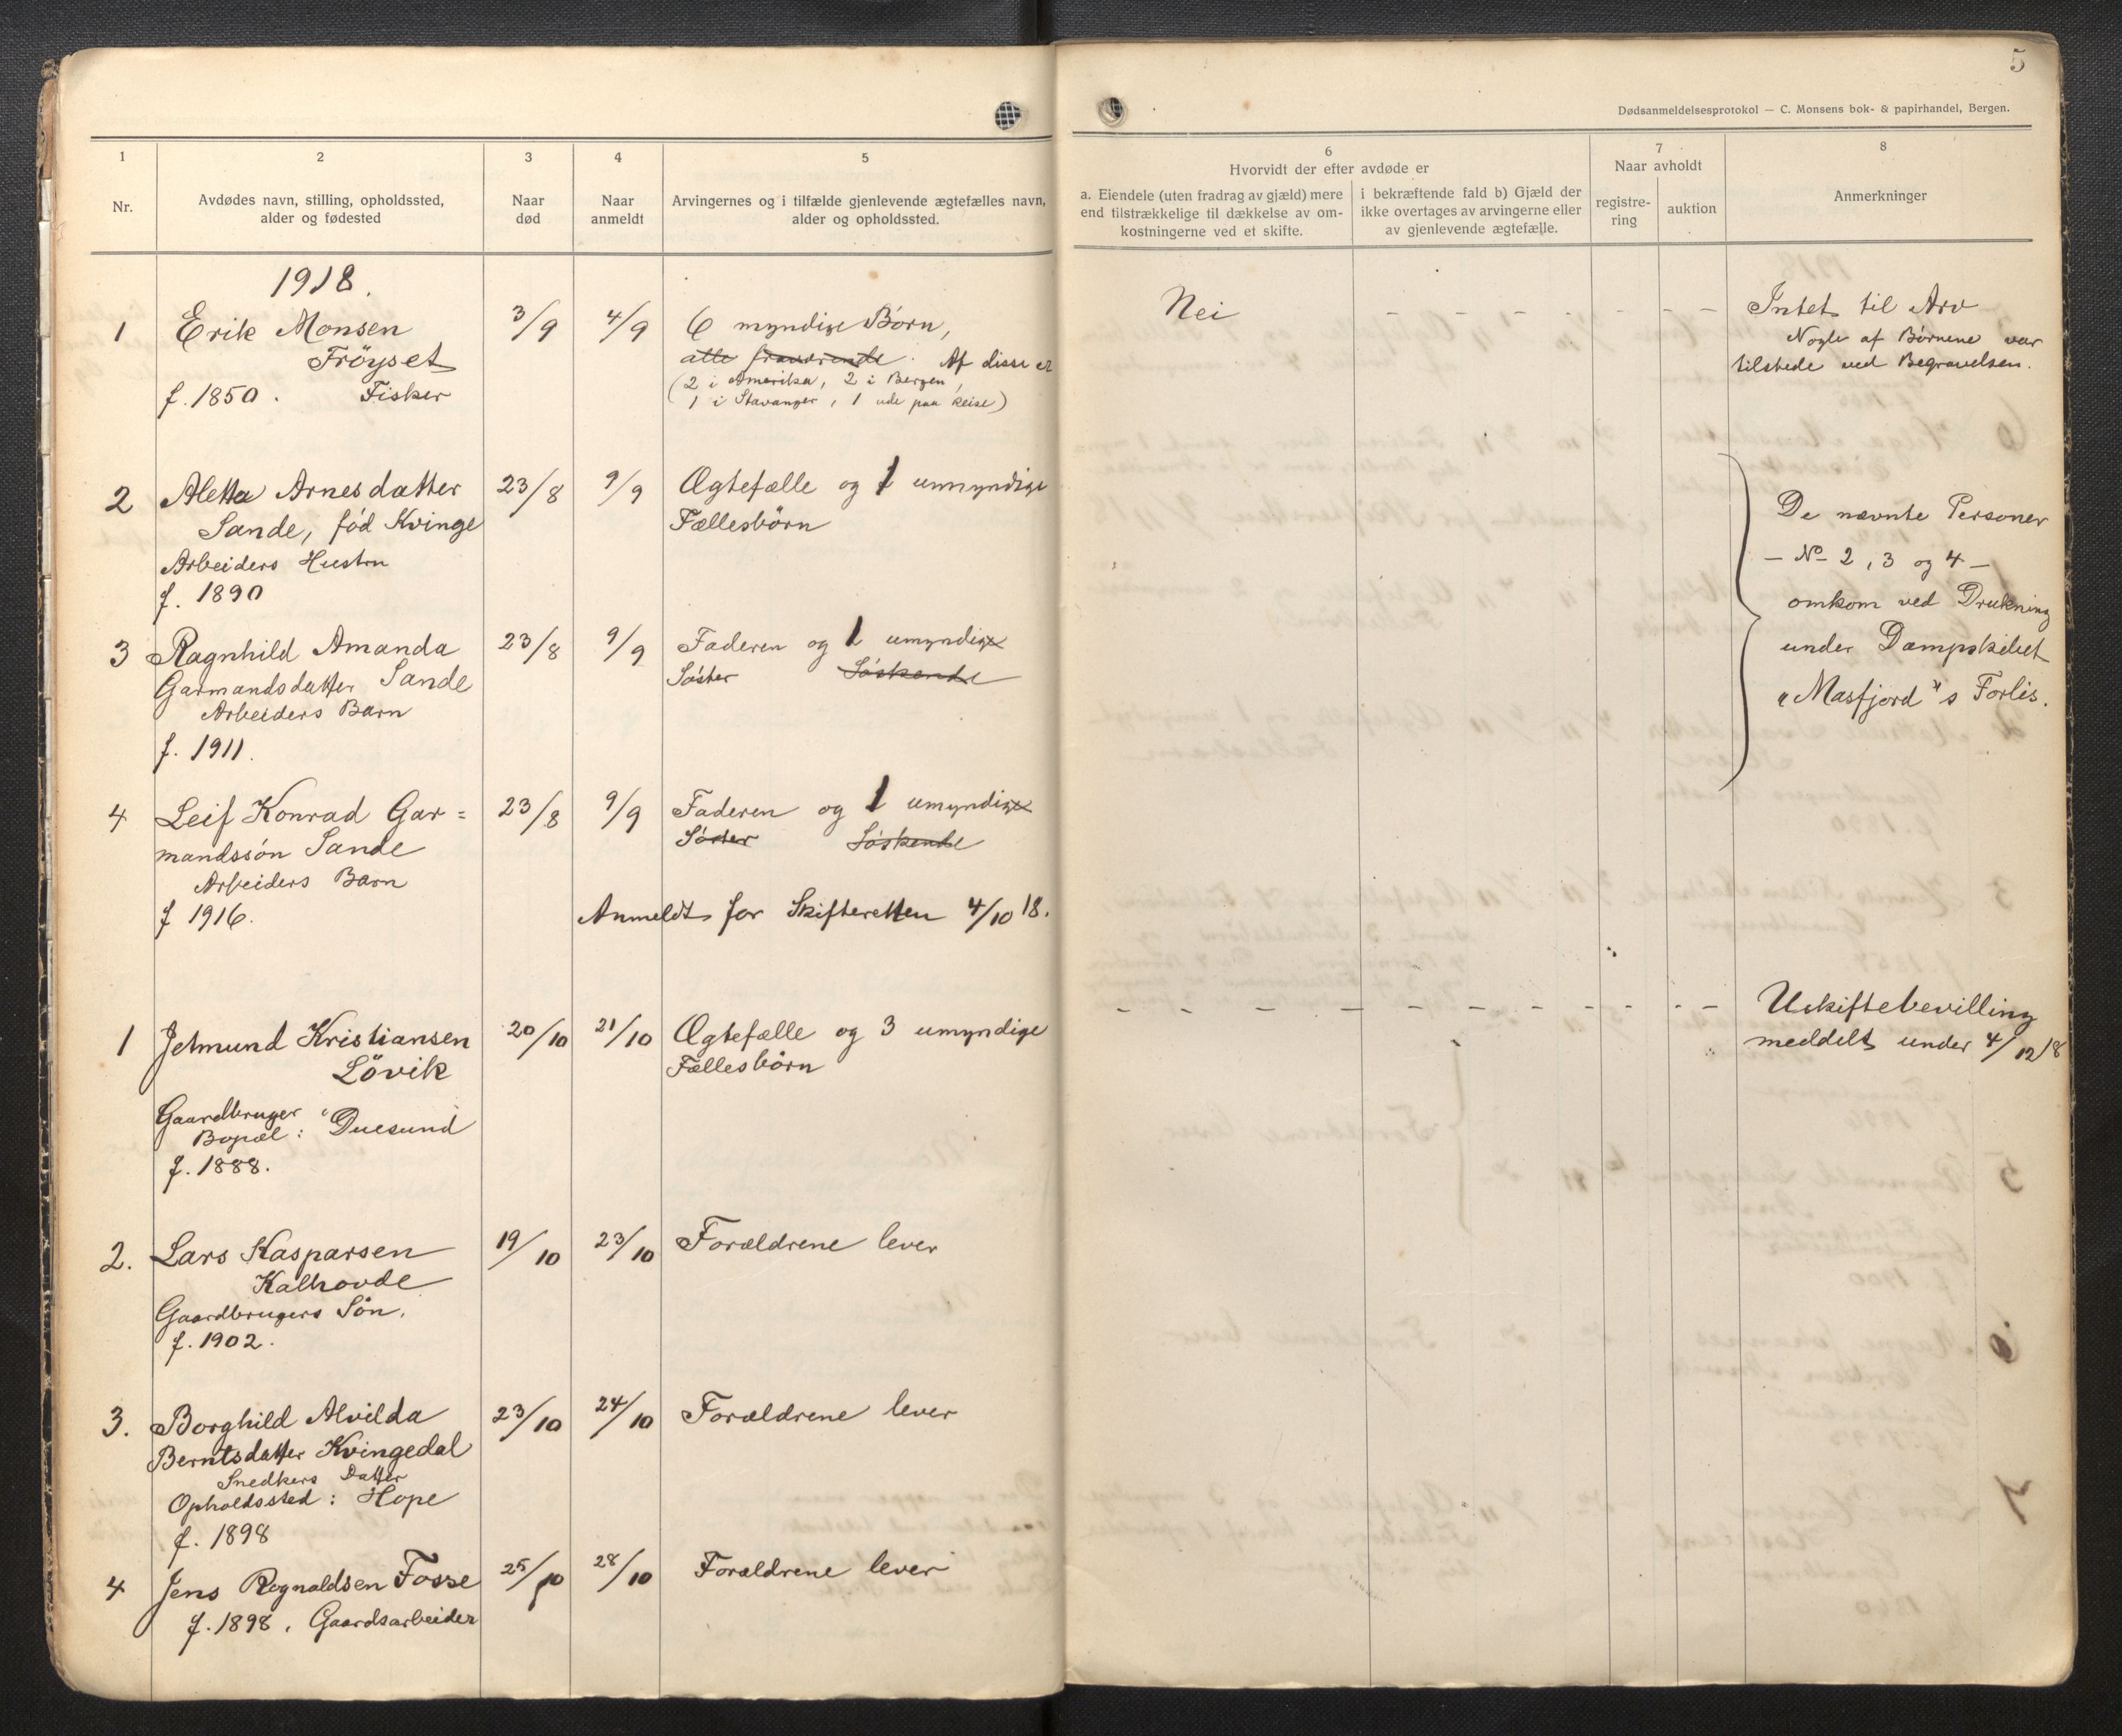 5
Dødsanmeldelsesprotokol — C. Monsens bok- & papirhandel, Bergen.
1
Nr.
2
Avdødes navn, stilling, opholdssted,
alder og fødested
3
Naar
død
4
Naar
anmeldt
5
Arvingernes og i tilfælde gjenlevende ægtefælles navn,
alder og opholdssted.
6
Hvorvidt der efter avdøde er
a. Eiendele (uten fradrag av gjæld) mere
end tilstrækkelige til dækkelse av om-
kostningerne ved et skifte.
i bekræftende fald b) Gjæld der
ikke overtages av arvingerne eller
av gjenlevende ægtefælle.
7
Naar avholdt
registre-
ring
auktion
8
Anmerkninger
1918.
1 Erik Monsen
Fröyset
f. 1850. Fisker
3/9
4/9
6 myndige Børn,
alle fraværende. Af disse er
(2 i Amerika, 2 i Bergen,
1 i Stavanger, 1 ude paa Reise)
Nei - - - - - - -
Intet til Arv
Nogle af Børnene var
tilstede ved Begravelsen.
2 Aletta Arnesdatter
Sande, fød Kvinge
Arbeiders Hustru
f. 1890
23/8
9/9
Ægtefælle og 1 umyndige
Fællesbörn
3 Ragnhild Amanda
Garmandsdatter Sande
Arbeiders Barn
f. 1911.
23/8
9/9
Faderen og 1 umyndige
Søster Söskende
4 Leif Konrad Gar=
mandssön Sande
Arbeiders Barn
f 1916.
23/8
9/9
Faderen og 1 umyndige
Søster Söskende
Anmeldt for Skifteretten 4/10 18.
De nævnte Personer
- No 2, 3 og 4 -
omkom ved Drukning
under Dampskibet
"Masfjord"s Forlis.
1 Jetmund Kristiansen
Lövik
Gaardbruger
Bopæl: Duesund
f. 1888.
20/10
21/10
Ægtefælle og 3 umyndige
Fællesbörn
- - - - - - - - - - -
Uskiftebevilling
meddelt under 4/12 18
2. Lars Kasparsen
Kalhovde
Gaardbrugers Sön.
f. 1902.
19/10
23/10
Forældrene lever
3. Borghild Alvilda
Berntsdatter Kvingedal
Snedkers Datter
Opholdssted: Hope
f. 1898
23/10
24/10
Forældrene lever
4 Jens Rognaldsen Fosse
f. 1898. Gaardsarbeider
25/10
28/10
Forældrene lever